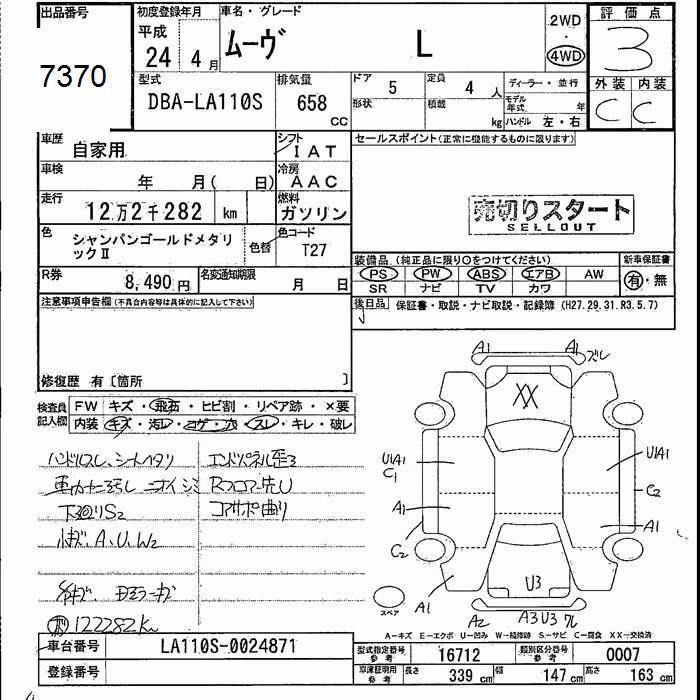 出品番号 初度登録年月 車名・グレード 2WD 評価点
平成 ムーヴ L ・ 3
7370 24年4月 4WD
型式 排気量 ドア 5 定員 4人 ディーラー・並行 外装 内装
DBA-LA110S 658 CC 形状 積載 kg モデル年式 年 C C
ハンドル 左・右
車歴 自家用 シフト IAT セールスポイント(正常に機能するものに限ります)
車検 年 月( 日) 冷房 AAC
走行 12万2千282 km 燃料 ガソリン 売切りスタート
SELLOUT
色 シャンパンゴールドメタリックⅡ 色替 色コード T27
装備品(純正品に限り○をつけてください) 新車保証書
R券 8,490円 名変通知期限 月 日 PS PW ABS エアB AW 有・無
SR ナビ TV カワ
注意事項申告欄(不具合内容等は具体的に記入して下さい) 後日品 保証書・取説・ナビ取説・記録簿(H27.29.31.R3.5.7)
修復歴 有〔箇所 〕
検査員記入欄 FW キズ・飛石・ヒビ割・リペア跡・×要
内装 キズ・汚レ・コゲ・穴・スレ・キレ・破レ
ハンドルスレ、シートヘタリ エンドパネル歪ミ
車内ヤケ汚レ ニオイ シミ Rフロアー先U
下廻りS2 コアサポ曲り
小キズ、A、U、W2
122282km
A1 A1 ズレ
XX
U1A1 U1A1
C1 C2
A1 A1
C2
U3
A1 A2 A3U3 ワレ
スペア
A-キズ E-エクボ U-凹み W-補修跡 S-サビ C-腐食 XX-交換済
車台番号 LA110S-0024871 型式指定番号 参考 16712 類別区分番号 参考 0007
登録番号 車庫証明用 参考 長さ 339 cm 幅 147 cm 高さ 163 cm